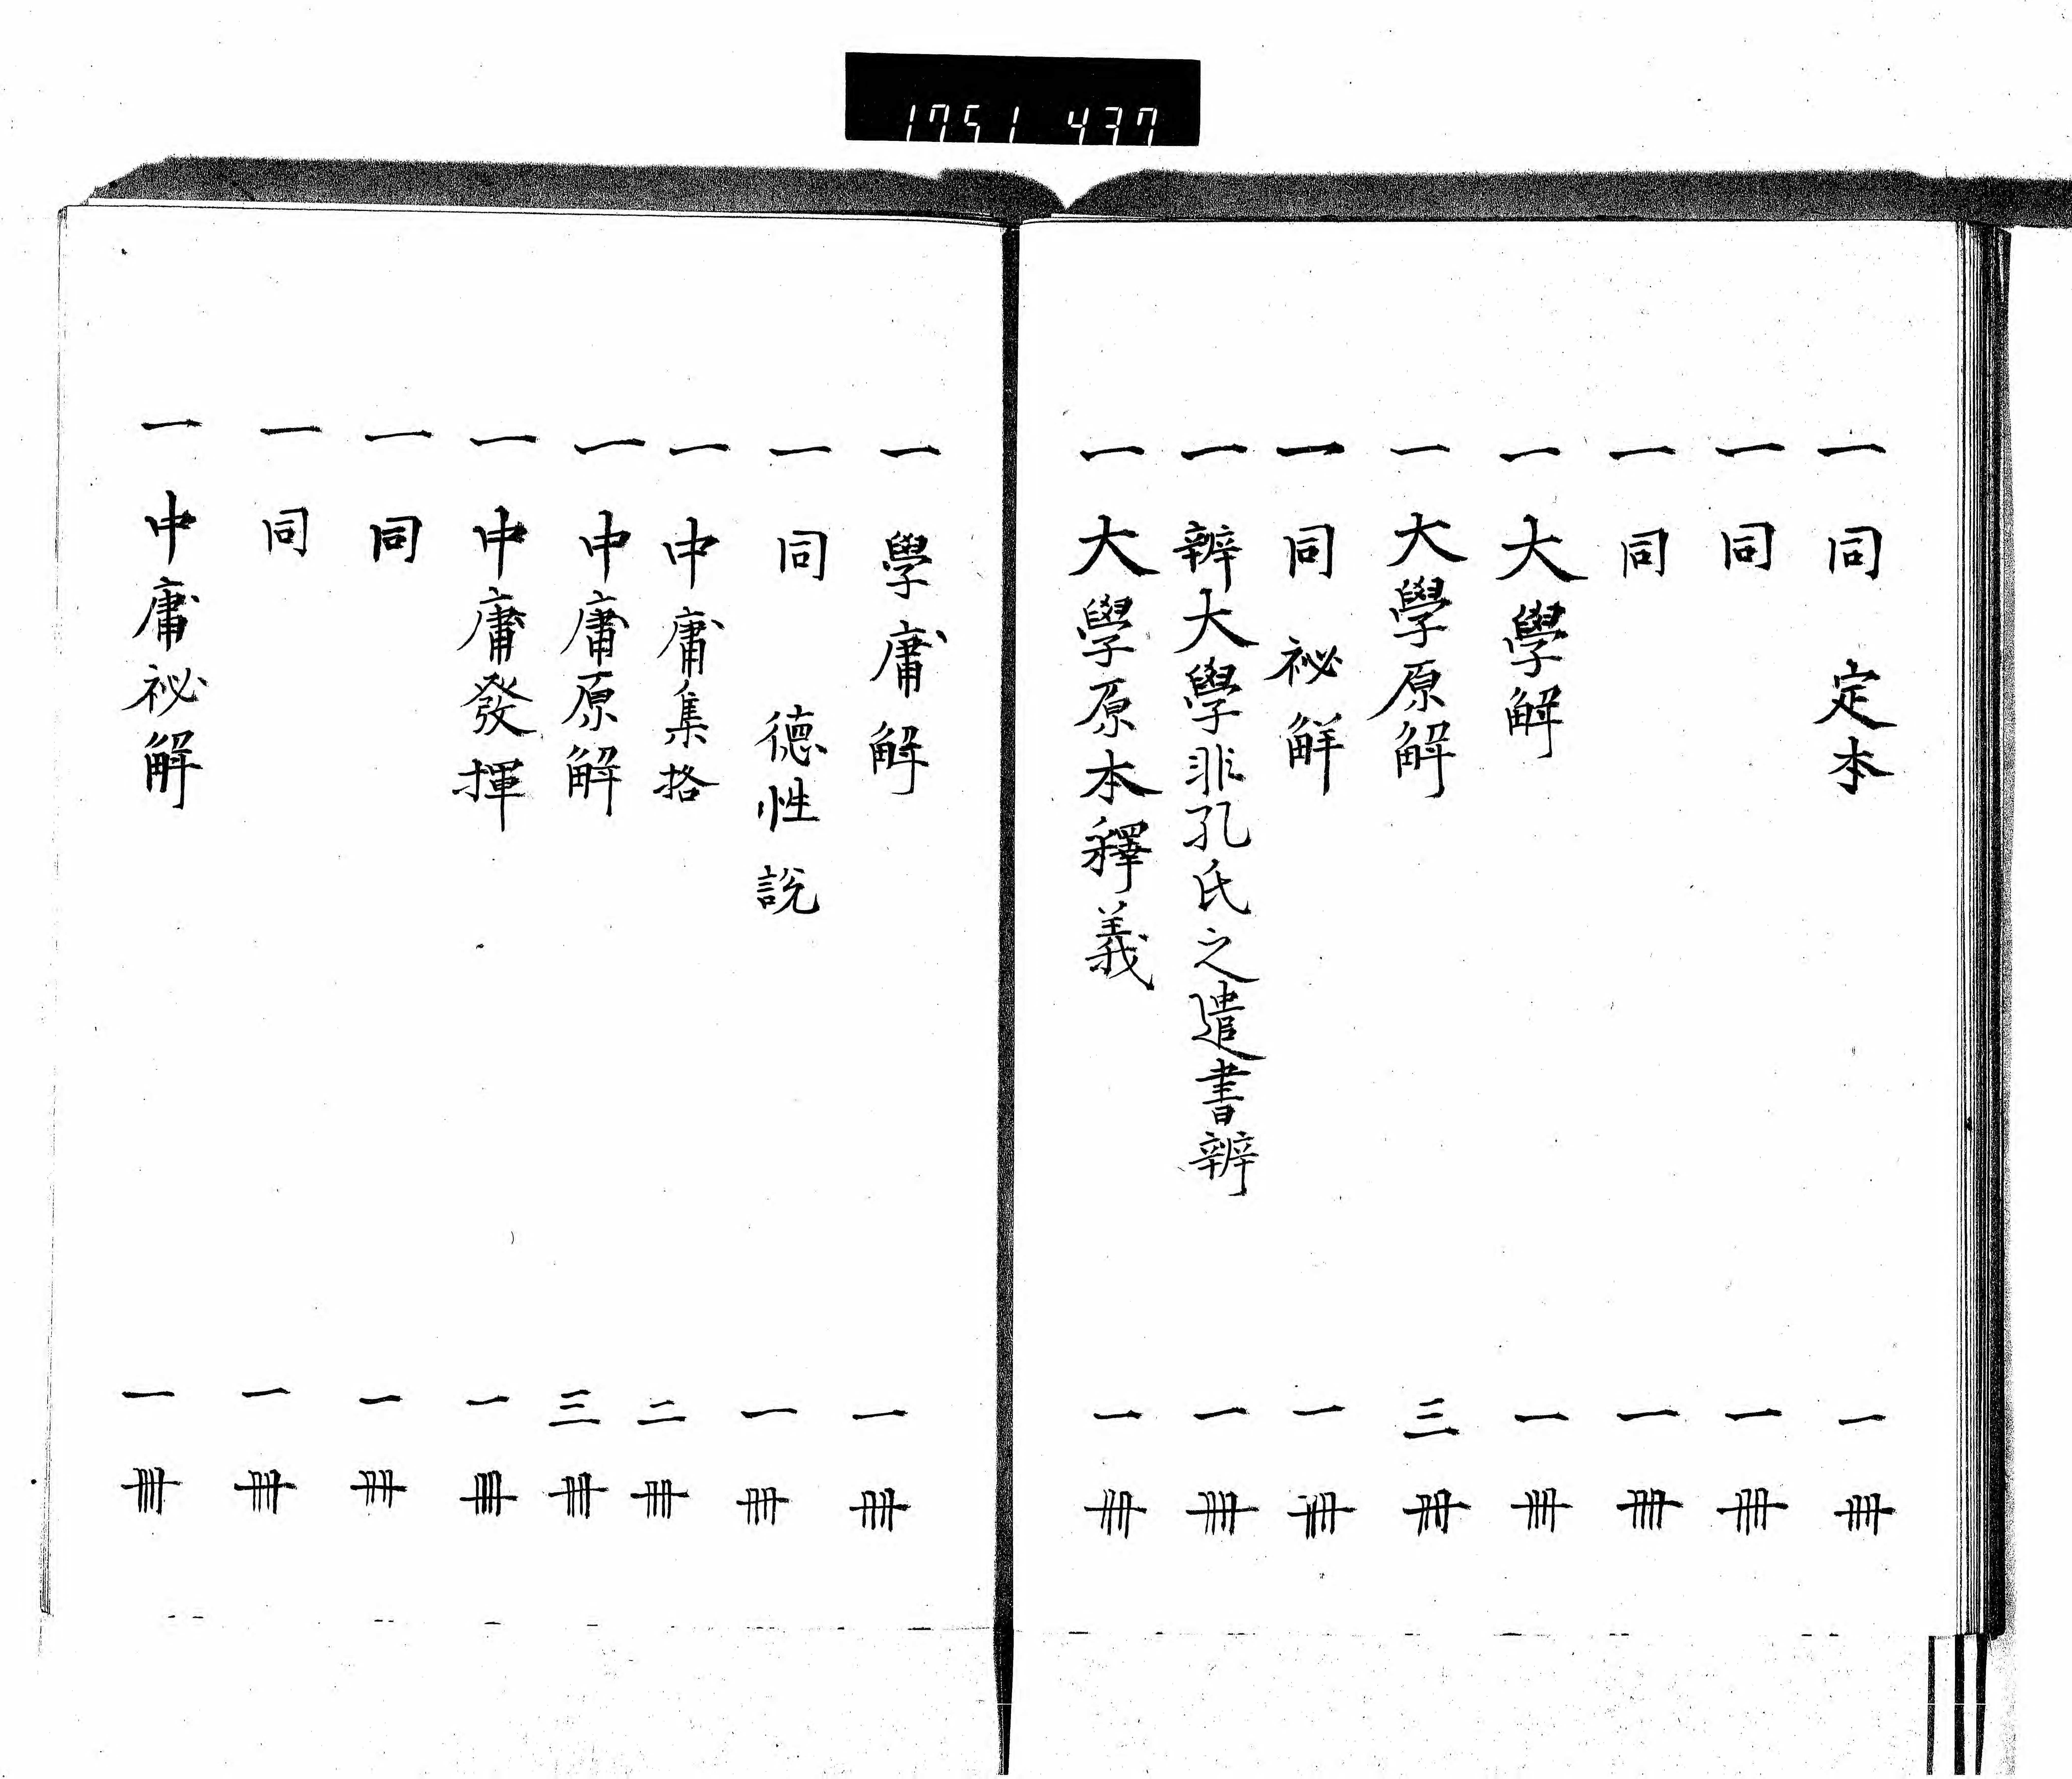 1751 437
一同 定本 一冊
一同 一冊
一同 一冊
一大學解 一冊
一大學原解 三冊
一同 祕解 一冊
一辨大學非孔氏之遺書辨 一冊
一大學原本釋義 一冊
一學庸解 一冊
一同 德性說 一冊
一中庸集㧞 二冊
一中庸原解 三冊
一中庸發揮 一冊
一同 一冊
一同 一冊
一中庸祕解 一冊